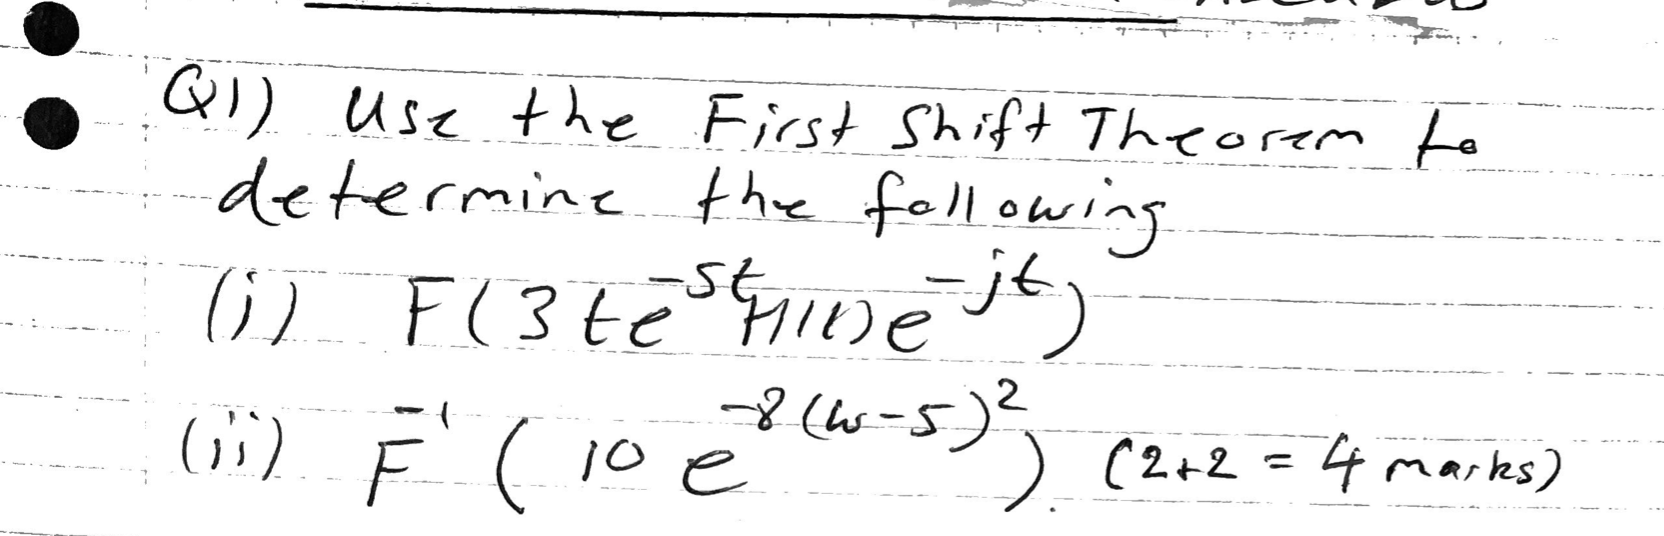 Q1) Use the First Shift Theorem to
determine the following
(i) F(3te^{-5t}H(t)e^{-jt})
(ii) F^{-1}(10e^{-8(w-5)^2}). (2+2=4 marks)